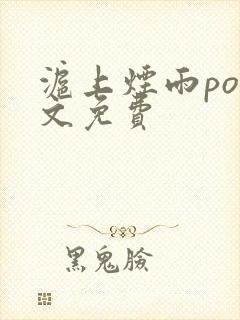 滬上煙雨po
文免費
黑鬼臉